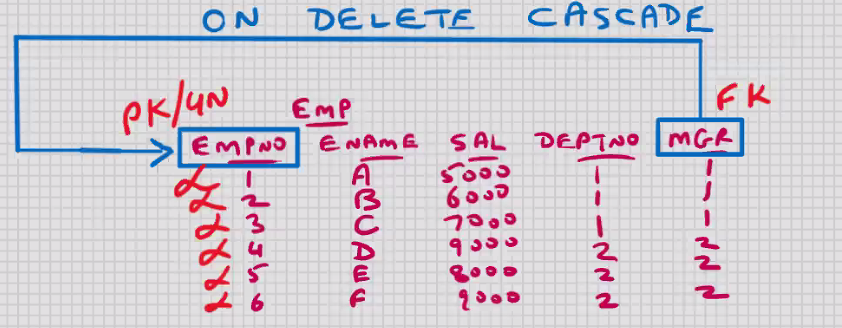 ON DELETE CASCADE
PK/UN EMP FK
EMPNO ENAME SAL DEPTNO MGR
1 A 5000 1 1
2 B 6000 1 1
3 C 7000 1 1
4 D 9000 2 2
5 E 8000 2 2
6 F 9000 2 2